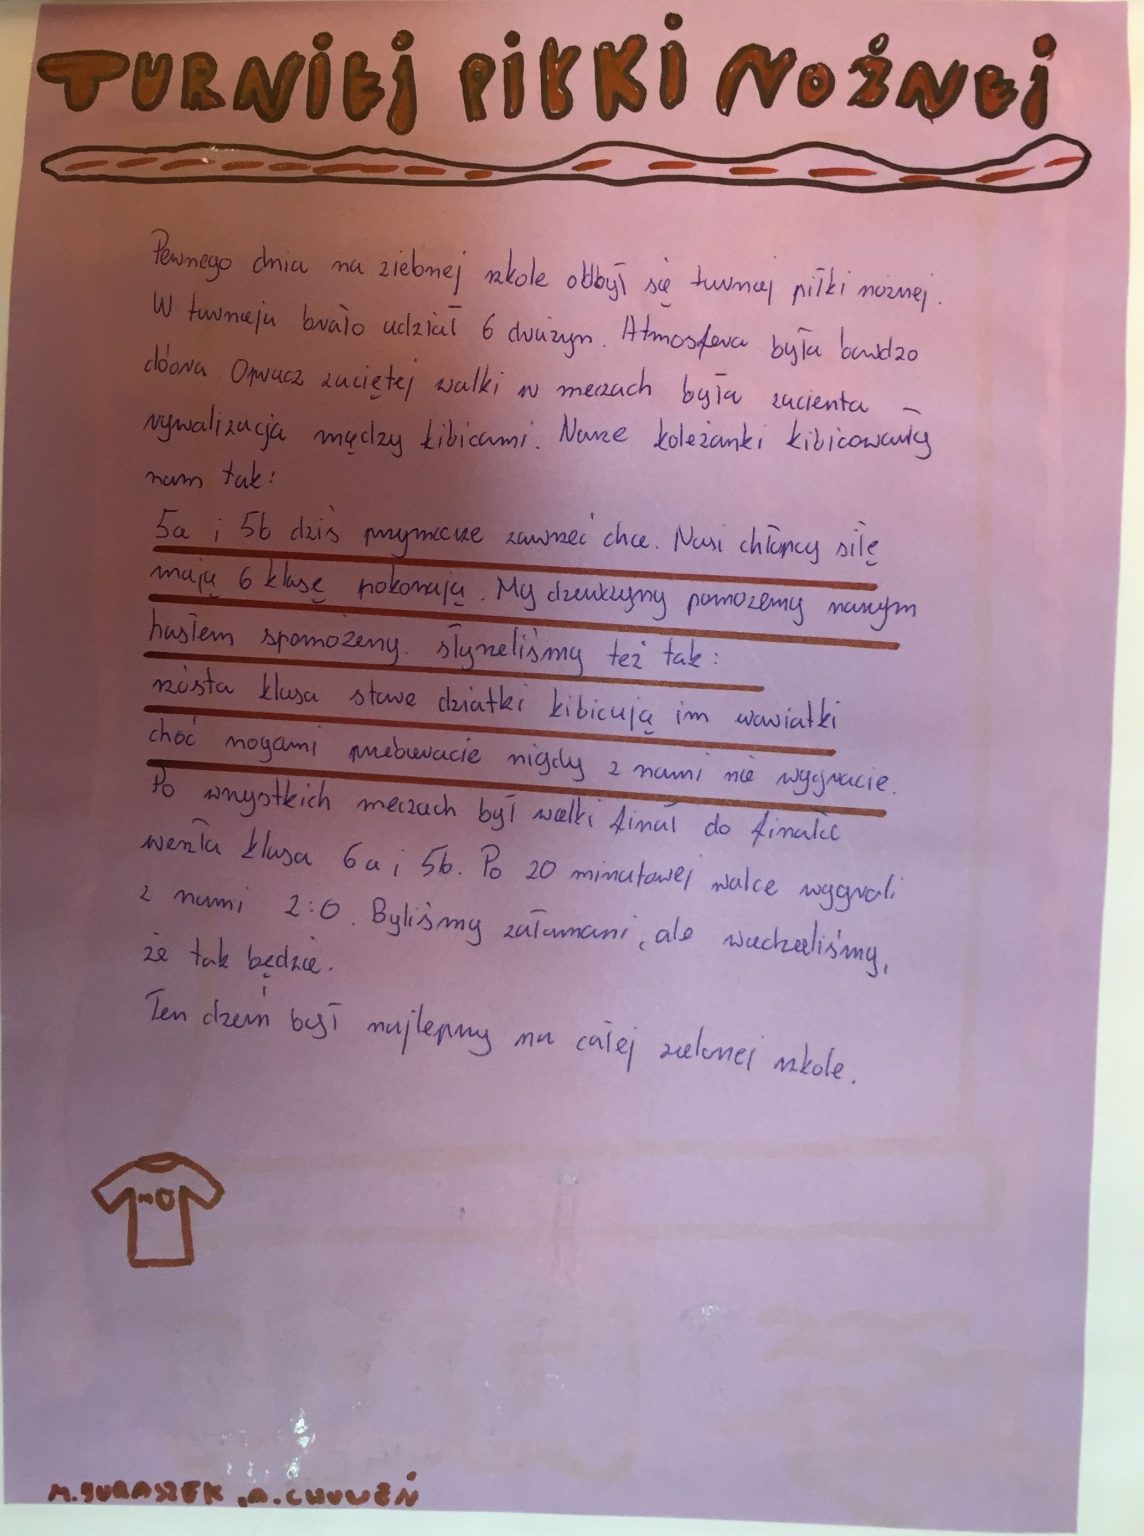 TURNIEJ PIŁKI NOŻNEJ
Pewnego dnia na ziebnej szkole odbył się turniej piłki nożnej.
W turnieju brało udział 6 drużyn. Atmosfera była bardzo
dobra. Oprucz zaciętej walki w meczach była zacienta
rywalizacja mędzy kibicami. Nasze koleżanki kibicowały
nam tak:
5a i 5b dziś przymecze zawrzeć chce. Nasi chłopcy siłę
mają 6 klasę pokonają. My dzewczyny pomożemy naszym
hasłem spomożemy. słyszeliśmy też tak:
szósta klasa stare dziatki kibicują im wariatki
choć nogami przebieracie nigdy z nami nie wygracie.
Po wszystkich meczach był wielki finał do finału
weszła klasa 6a i 5b. Po 20 minutowej walce wygrali
z nami 2:0. Byliśmy załamani, ale wiedzieliśmy,
że tak będzie.
Ten dzień był najlepszy na całej zielonej szkole.